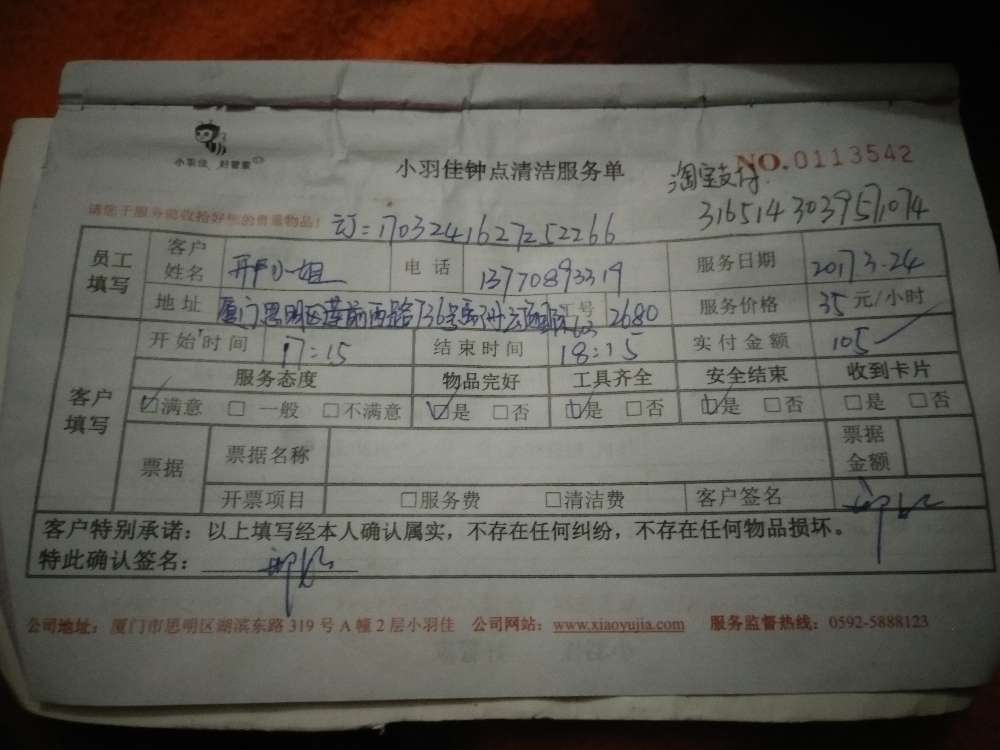 小羽佳 好管家
小羽佳钟点清洁服务单
NO.0113542
淘宝支付
请您于服务前收拾好您的贵重物品!
订=1703241627252266
员工填写 客户姓名 小姐 电话 13770893319 服务日期 2017 3.24
地址 厦门思明区莲前西路736号 工号 2680 服务价格 35 元/小时
客户填写 开始时间 17:15 结束时间 18:15 实付金额 105
服务态度 物品完好 工具齐全 安全结束 收到卡片
☑满意 □一般 □不满意 ☑是 □否 ☑是 □否 ☑是 □否 □是 □否
票据 票据名称 票据金额
开票项目 □服务费 □清洁费 客户签名
客户特别承诺：以上填写经本人确认属实，不存在任何纠纷，不存在任何物品损坏。
特此确认签名：
公司地址：厦门市思明区湖滨东路 319 号 A 幢 2 层小羽佳 公司网站：www.xiaoyujia.com 服务监督热线：0592-5888123